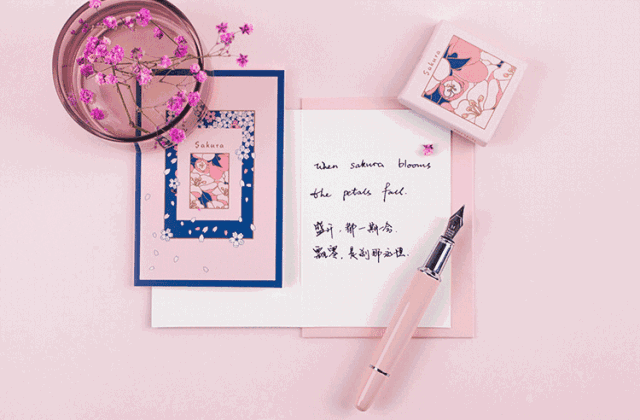 Sakura
Sakura
when sakura blooms
the petals fall.
盛开.一期
飘零,刹那